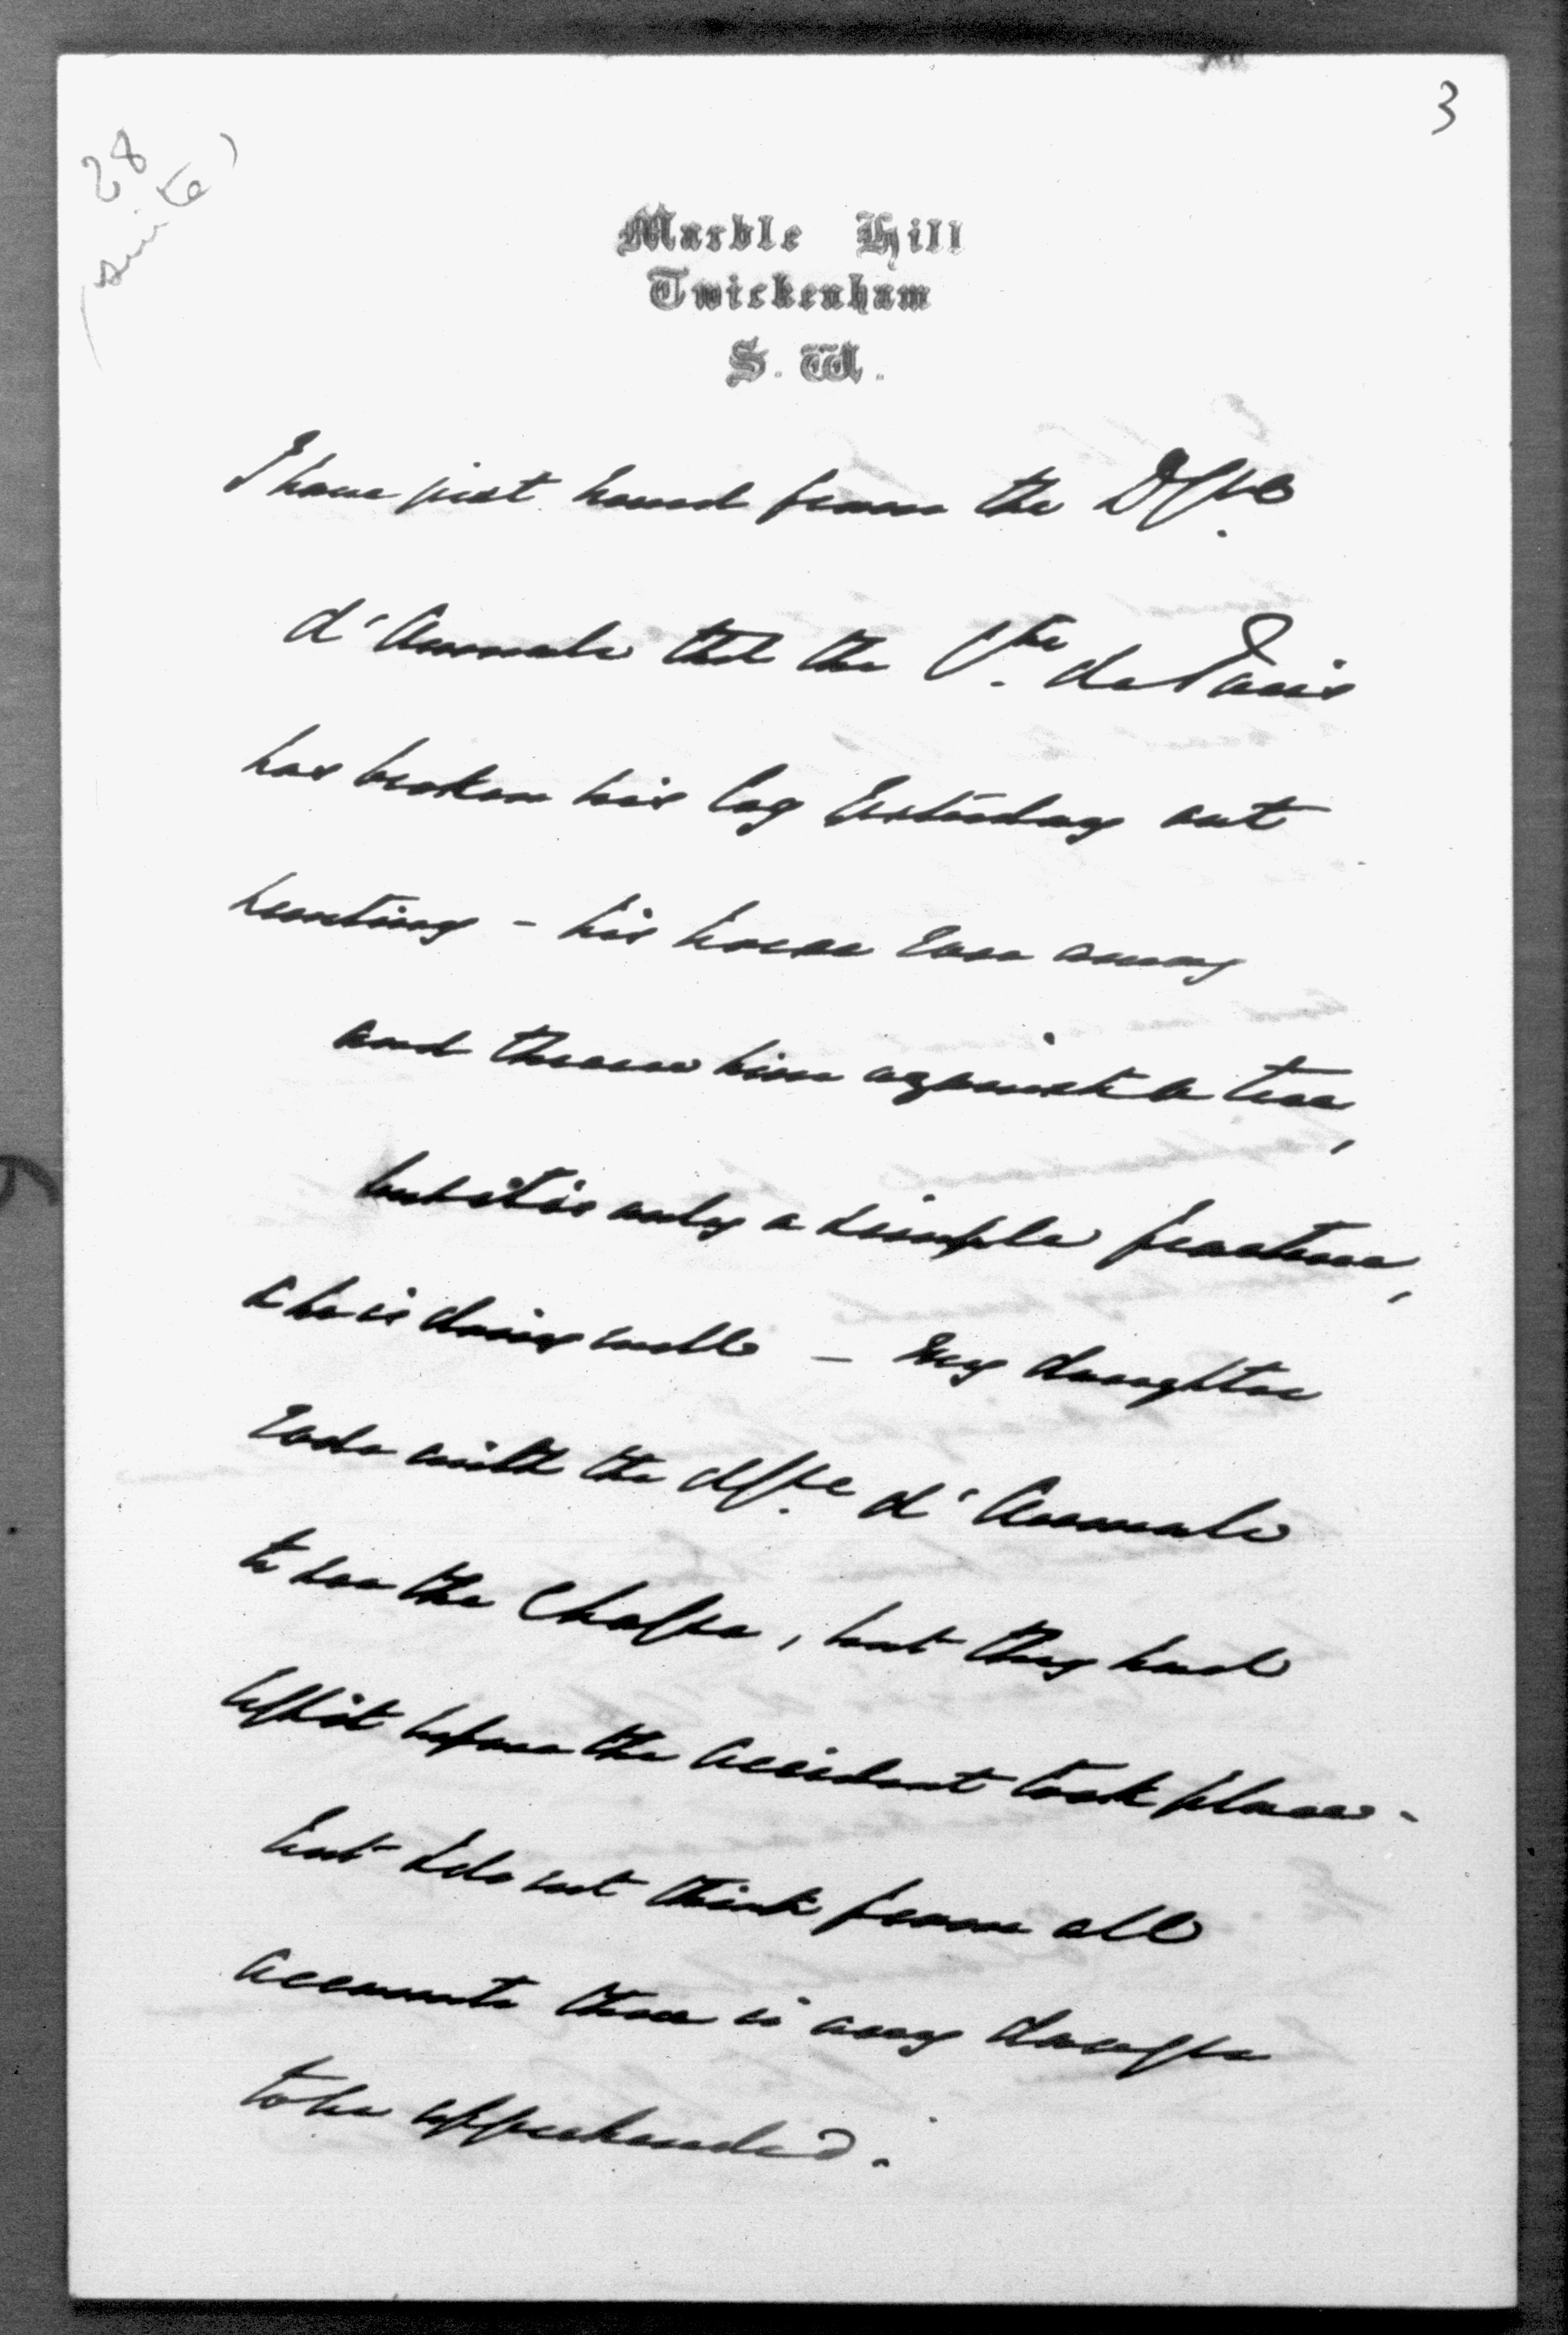 3
28
(suite)
Marble Hill
Twickenham
S. W.
I have just heard from the
d'Aumale that the Cte. de Paris
has broken his leg Yesterday out
hunting - his horse ran away
and threw him against a tree,
but it is only a simple fracture,
& he is doing well - My daughter
rode with the Dsse d'Aumale
to see the Chasse, but they had
left it before the accident took place -
but I do not think from all
accounts there is any danger
to be apprehended.